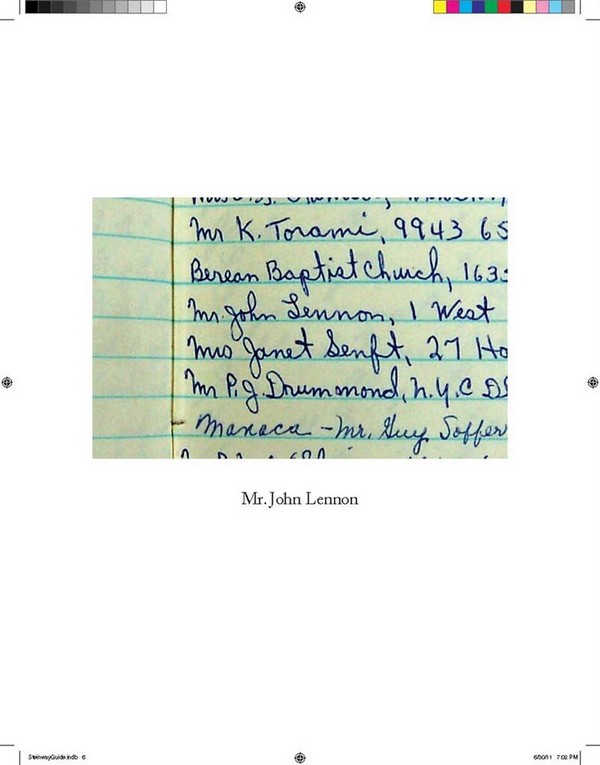 Mr K. Torami, 9943 65
Berean Baptist Church, 163
Mr. John Lennon, 1 West
Mrs Janet Senft, 27 Ho
Mr P.J. Drummond, N.Y.C
Manaca - Mr. Guy Soffer
Mr. John Lennon
SteinwayGuide.indb 6
6/30/11 7:02 PM